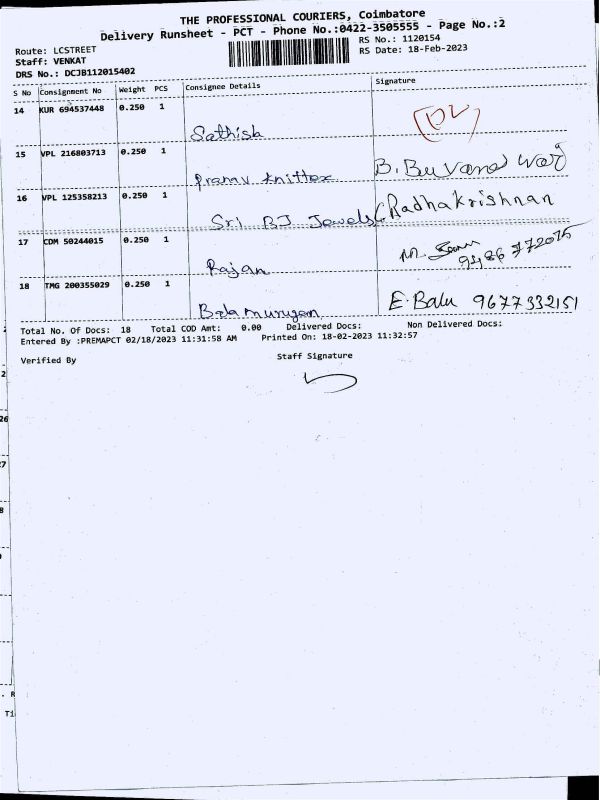 THE PROFESSIONAL COURIERS, Coimbatore
Delivery Runsheet - PCT - Phone No.:0422-3505555 - Page No.:2
Route: LCSTREET
Staff: VENKAT
DRS No.: DCJB112015402
RS No.: 1120154
RS Date: 18-Feb-2023
S No Consignment No Weight PCS Consignee Details Signature
14 KUR 694537448 0.250 1
Sathish
15 VPL 216803713 0.250 1
Pranav Knittex B. Buvaneswari
16 VPL 125358213 0.250 1
Sri BJ Jewels Radhakrishnan
17 CDM 50244015 0.250 1
Rajan M.
18 TMG 200355029 0.250 1
Balamurugan E. Balu 9677332151
Total No. Of Docs: 18 Total COD Amt: 0.00 Delivered Docs: Non Delivered Docs:
Entered By :PREMAPCT 02/18/2023 11:31:58 AM Printed On: 18-02-2023 11:32:57
Verified By Staff Signature